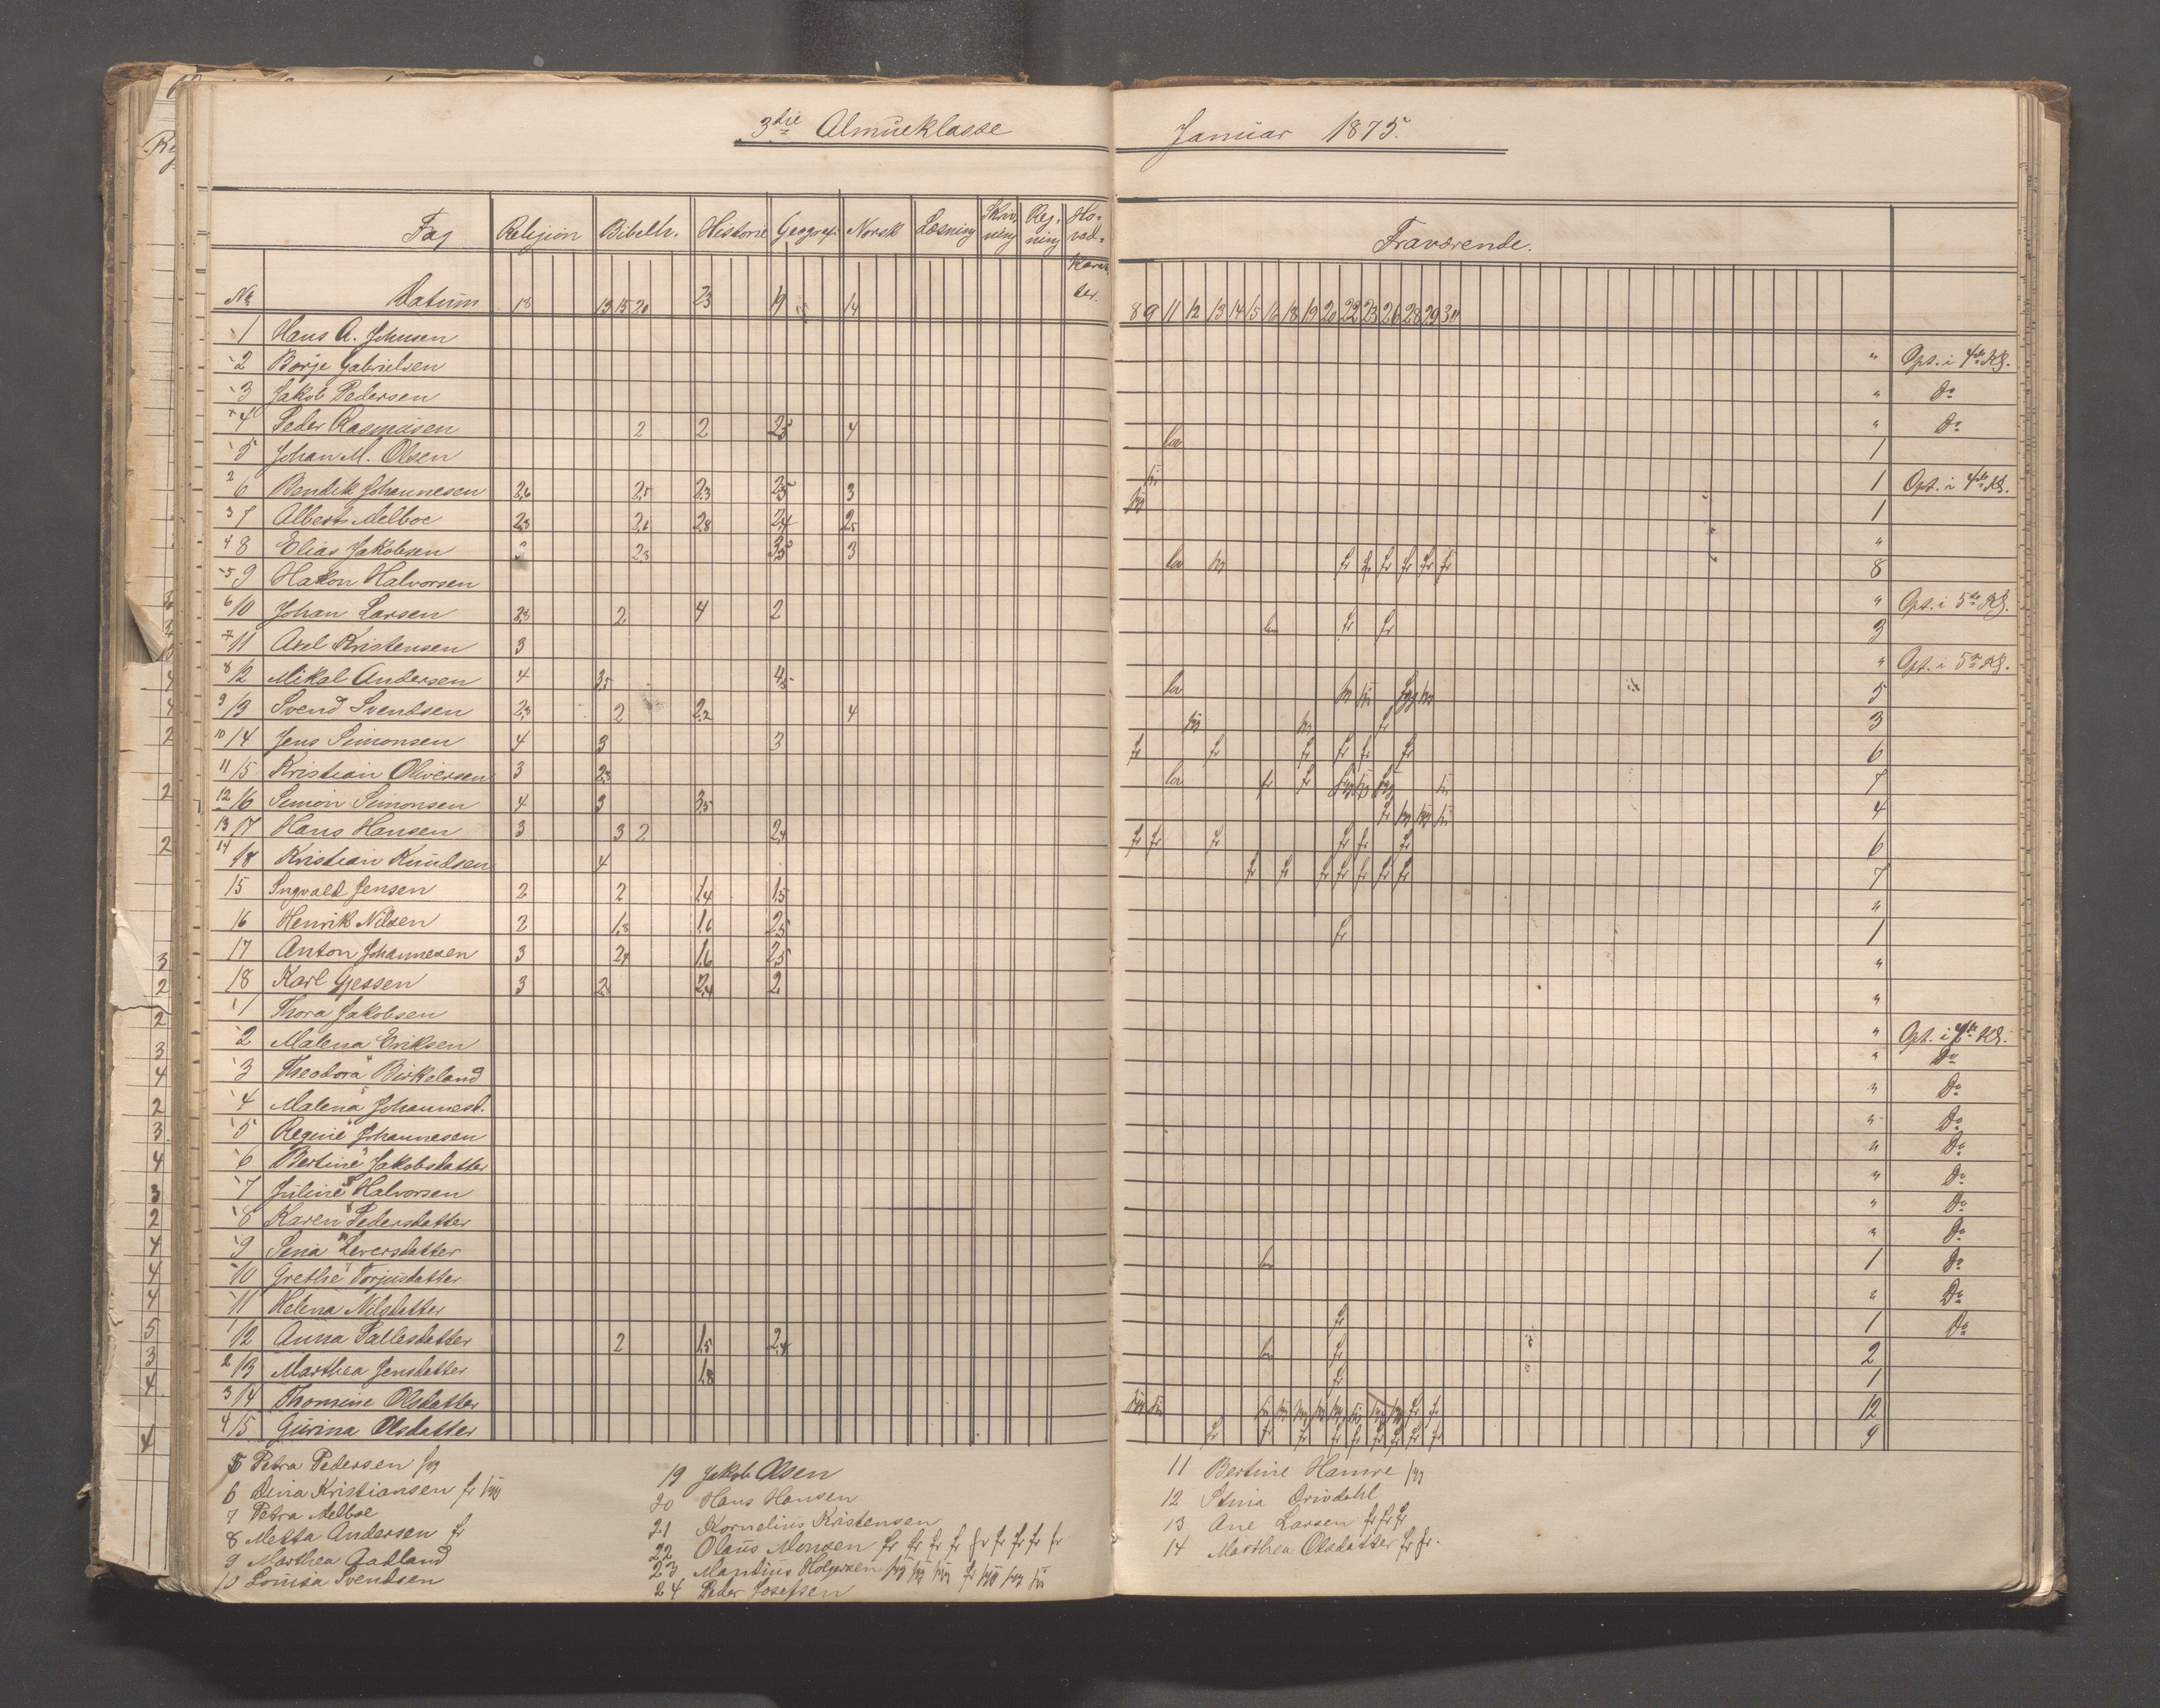 3die Almueklasse Januar 1875.
Fag Religion Bibelh. Historie Geograf. Norsk Læsning Skrivning Regning Hovedkarakter. Fraværende.
No Datum 18 13 15 20 23 19 14 8 9 11 12 13 14 15 16 18 19 20 22 23 26 28 29 30
1 Hans A. Johnsen " Opt. i 4de Kl.
2 Børje Gabrielsen " Do
3 Jakob Pedersen " Do
4 Peder Rasmusen 2 2 2,5 4 lov 1
5 Johan M. Olsen 1 Opt. i 4de Kl.
2 6 Bendik Johannesen 2,6 2,5 2,3 2,5 3 1
3 7 Albert Melboe 2,3 2,8 2,4 2,5 "
4 8 Elias Jakobsen 2,3 3,5 3 lov fr fr fr fr fr 8
5 9 Hakon Halvorsen " Opt. i 5te Kl.
6 10 Johan Larsen 2,3 2 4 2 fr fr 3
7 11 Axel Kristensen 3 " Opt. i 5te Kl.
8 12 Mikal Andersen 4 3,5 4,5 lov 5
9 13 Svend Svendsen 2,3 2 2,2 4 3
10 14 Jens Simonsen 4 3 3 fr fr fr fr fr fr 6
11 15 Kristian Oliversen 3 2,3 lov fr fr 7
12 16 Simon Simonsen 4 3 3,5 4
13 17 Hans Hansen 3 3 2 2,4 fr fr fr fr fr fr 6
14 18 Kristian Knudsen 4 fr fr fr fr fr fr fr 7
15 Ingvald Jensen 2 2 1,4 1,5 "
16 Henrik Nilsen 2 1,8 1,6 2,5 fr 1
17 Anton Johannesen 3 2,4 1,6 2,5 "
18 Karl Gjessen 3 2,3 2,4 2 "
1 Thora Jakobsen " Opt. i 4de Kl.
2 Malena Eriksen " Do
3 Theodora Birkeland " Do
4 Malena Johannesd. " Do
5 Regine Johannesen " Do
6 Bertine Jakobsdatter " Do
7 Juline Halvorsen " Do
8 Karen Pedersdatter " Do
9 Sina Iversdatter 1 Do
10 Grethe Torjusdatter " Do
11 Helena Nilsdatter fr 1 Do
12 Anna Pallesdatter 2 1,5 2,4 fr 2
2 13 Marthea Jensdatter 1,8 fr 1
3 14 Thomine Olsdatter fr fr 12
4 15 Gurina Olsdatter fr fr fr fr fr fr fr fr fr 9
5 Petra Pedersen
6 Dina Kristiansen fr
7 Petra Melboe
8 Metta Andersen fr
9 Marthea Gadland
10 Lovisa Svendsen
19 Jakob Olsen
20 Hans Hansen
21 Kornelius Kristensen
22 Olaus Monsen fr fr fr fr fr fr fr fr fr
23 Mandius Holgersen
24 Peder Josefsen
11 Bertine Hamre
12 Stina Drivdahl
13 Ane Larsen fr fr fr
14 Marthea Olsdatter fr fr.